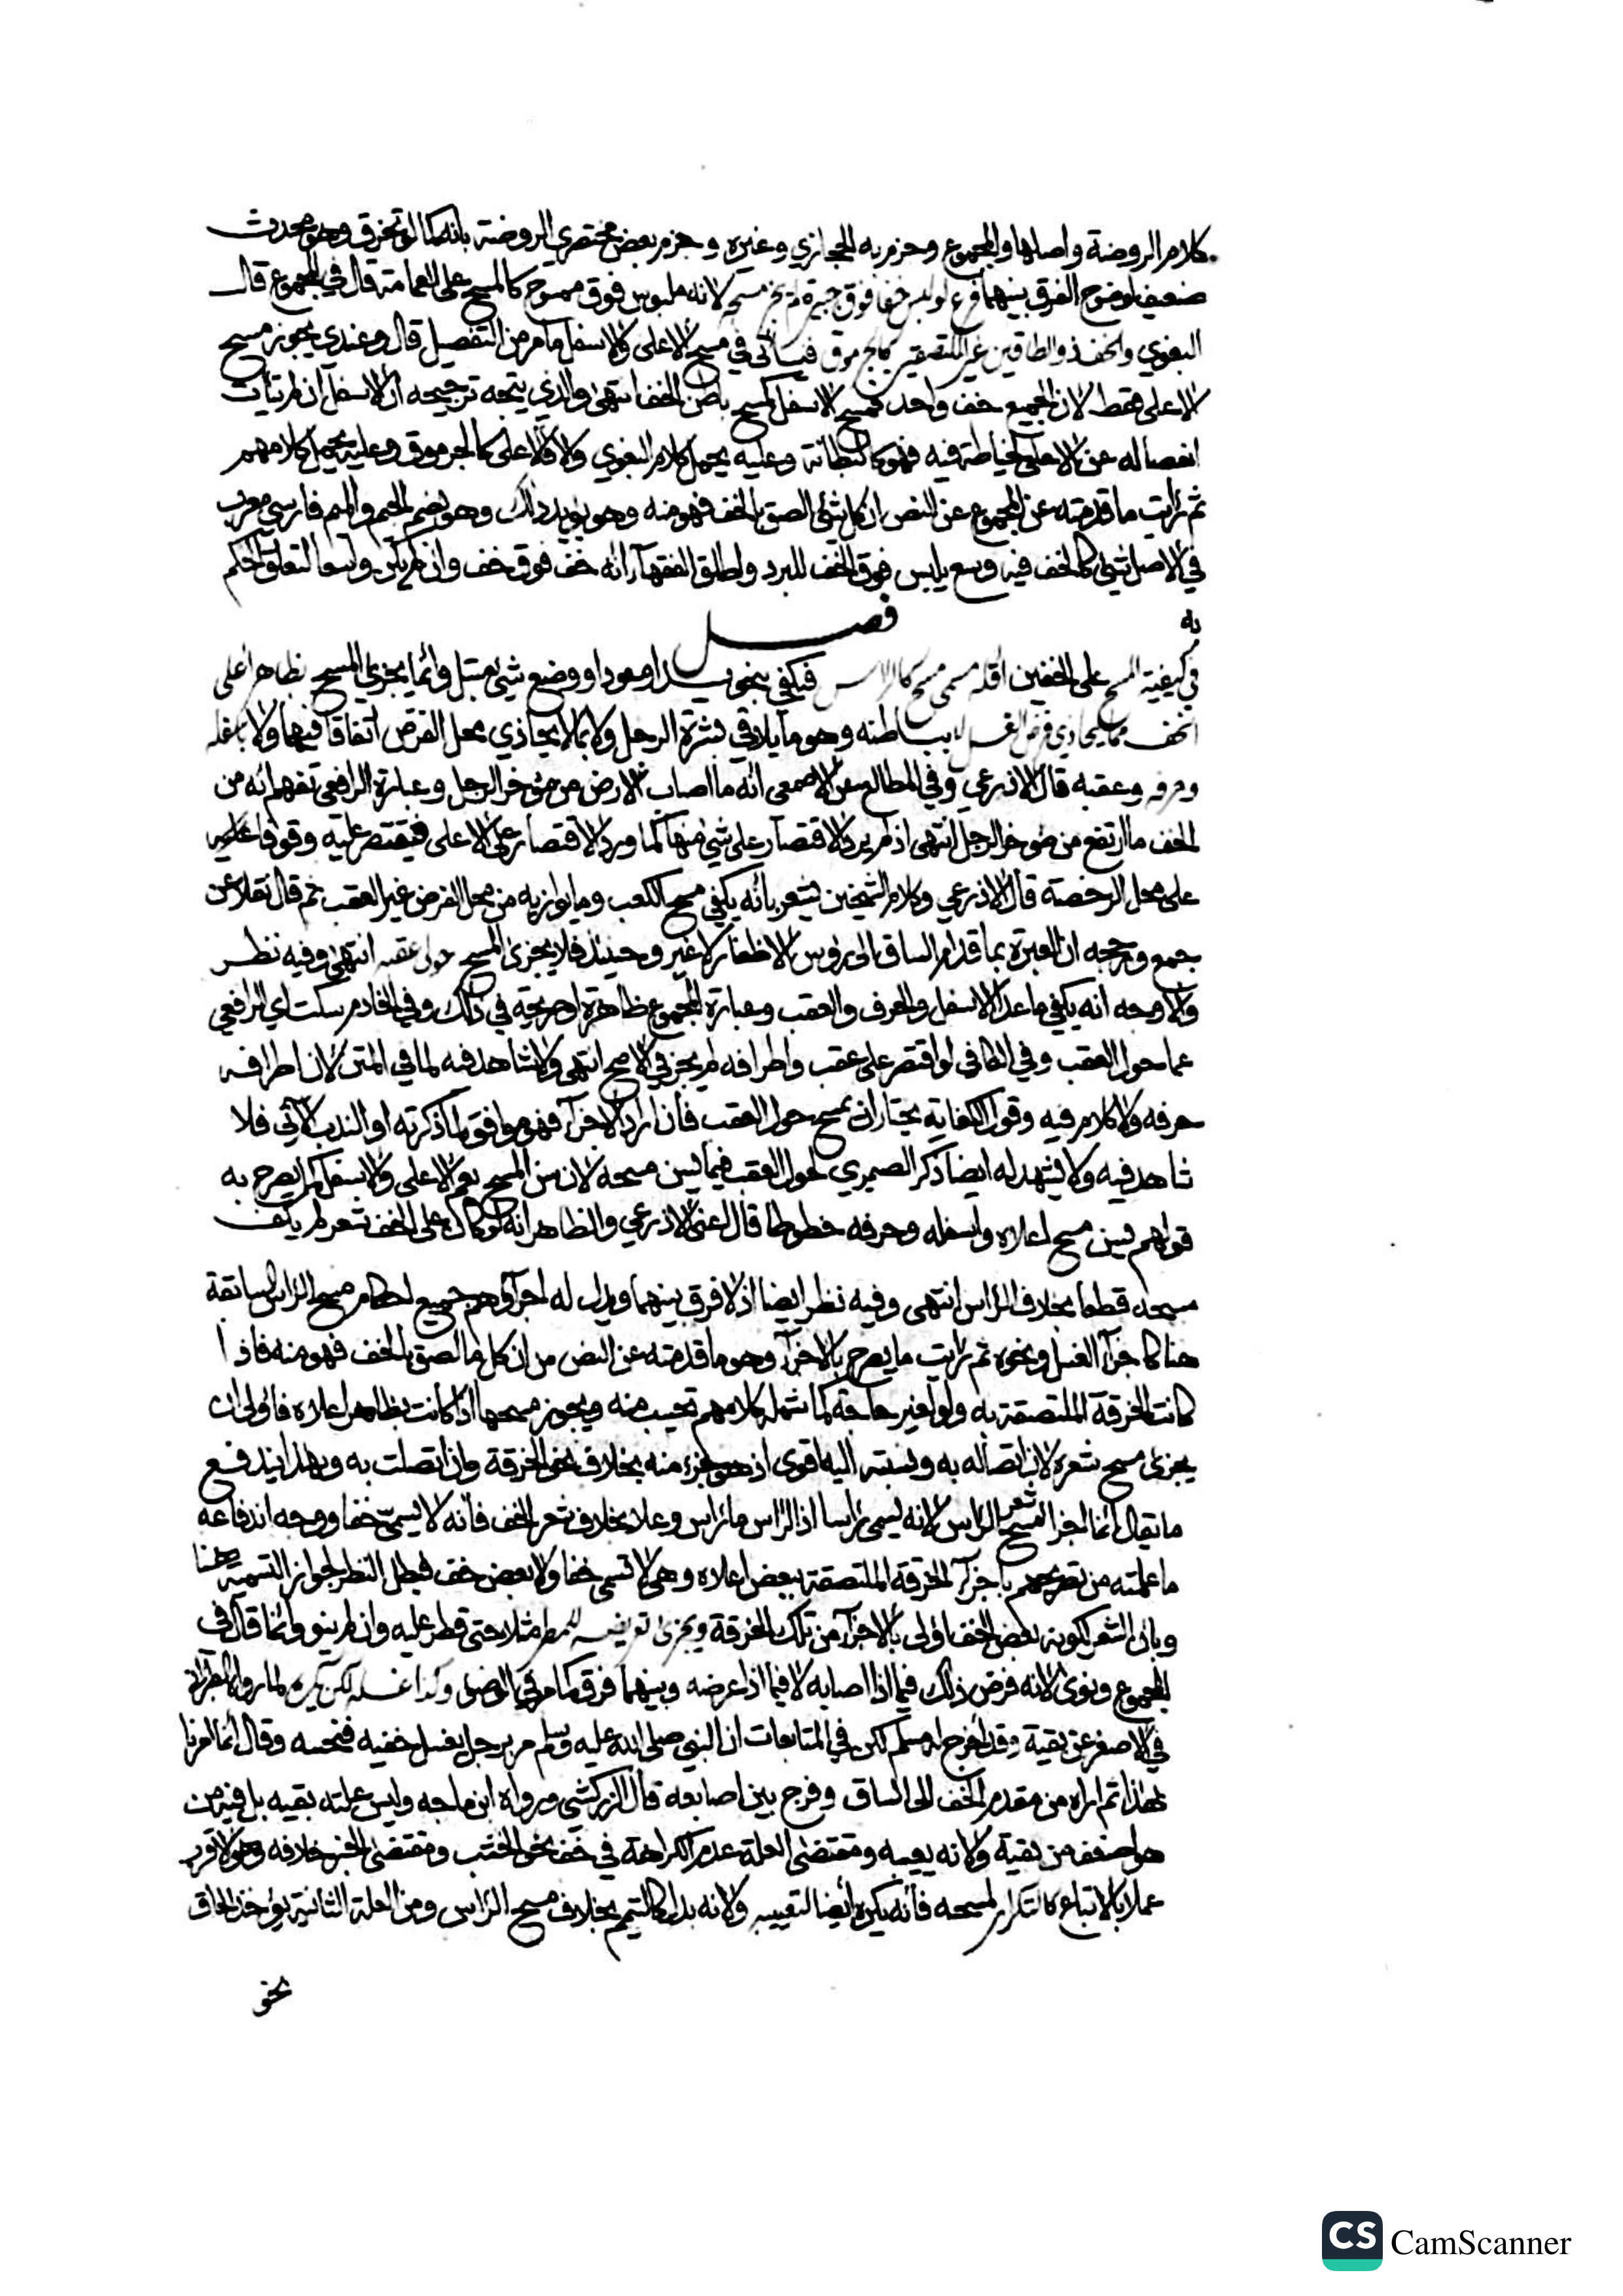 كلام الروضة واصلها والمجموع وجزم به الحجازي وغيره وجزم بعض مختصري الروضة بانه كما لو تخرق وهو محدث
ضعيف لوضوح الفرق بينهما فرع لو لبس خفا فوق جبيرة لم يجز مسحه لانه ملبوس فوق ممسوح كالمسح على العمامة قال في المجموع قال
البغوي والخف ذو الطاقين غير الملتصقين كالجرموق فياتي في مسح الاعلى والاسفل ما مر من التفصيل قال وعندي يجوز مسح
الاعلى فقط لان الجميع خف واحد فمسح الاسفل كمسح باطن الخف انتهى والذي يتجه ترجيحه ان الاسفل ان لم يتات
انفصاله عن الاعلى لخياطته فيه فهو كالبطانة وعليه يحمل كلام البغوي والا فالاعلى كالجرموق وعليه يحمل كلامهم
ثم رايت ما قدمته عن المجموع عن النص ان كل شئ الصق بالخف فهو منه وهو يؤيد ذلك وهو بضم الجيم والميم فارسي معرب
في الاصل شئ كالخف فيه وسع يلبس فوق الخف للبرد واطلق الفقهآء انه خف فوق خف وان لم يكن واسعا لتعلق الحكم
به
فصل
في كيفية المسح على الخفين اقله مسمى مسح كالراس فيكفي بنحو يد او عود او وضع شئ مبتل وانما يجزئ المسح بظاهر اعلى
الخف مما يحاذي فرض الغسل لا بباطنه وهو ما يلاقي بشرة الرجل ولا بما لا يحاذي محل الفرض اتفاقا فيهما ولا باسفله
وحرفه وعقبه قال الاذرعي وفي المطالع عن الاصمعي انه ما اصاب الارض من مؤخر الرجل وعبارة الرافعي تفهم انه من
الخف ما ارتفع من مؤخر الرجل انتهى اذ لم يرد الاقتصار على شئ منها كما ورد الاقتصار على الاعلى فيقتصر عليه وقوفا
على محل الرخصة قال الاذرعي وكلام الشيخين يشعر بانه يكفي مسح الكعب وما يوازيه من محل الفرض غير العقب ثم قال نقلا عن
جمع ورجحه ان العبرة بما قدام الساق الى رؤس الاظفار لا غير وحينئذ فلا يجزئ المسح حوالى عقبه انتهى وفيه نظر
والاوجه انه يكفي ما عدا الاسفل والحرف والعقب وعبارة المجموع ظاهرة او صريحة في ذلك وفي الخادم سكت اي الرافعي
عما حول العقب وفي الكافي لو اقتصر على عقب واطرافه لم يجز في الاصح انتهى ولا شاهد فيه لما في المتن لان اطرافه
حرفه ولا كلام فيه وقول الكفاية يختار ان يمسح حول العقب فان اراد الاجزآء فهو موافق لما ذكرته او الندب الآتي فلا
شاهد فيه ولا يشهد له ايضا ذكر الصيمري لحول العقب فيما يسن مسحه لان سن المسح يعم الاعلى والاسفل كما يصرح به
قولهم يسن مسح اعلاه واسفله وحرفه خطوطا قال اعني الاذرعي والظاهر انه لو كان على الخف شعر لم يكف
مسحه قطعا بخلاف الراس انتهى وفيه نظر ايضا اذ لا فرق بينهما ويدل له اجرآؤهم جميع احكام مسح الراس السابقة
هنا كاجزآء الغسل ونحوه ثم رايت ما يصرح بالاجزآء وهو ما قدمته عن النص من ان كل ما الصق بالخف فهو منه فاذا
كانت الخرقة الملتصقة به ولو لغير حاجة كما شمله كلامهم تحسب منه ويجوز مسحها اذا كانت بظاهر اعلاه فاولى ان
يجزئ مسح شعره لان اتصاله به ونسبته اليه اقوى اذ هو كجزء منه بخلاف نحو الخرقة وان اتصلت به وبهذا يندفع
ما يقال انما اجزا مسح شعر الراس لانه يسمى راسا اذ الراس ما راس وعلا بخلاف شعر الخف فانه لا يسمى خفا ووجه اندفاعه
ما علمته من تصريحهم باجزآء الخرقة الملتصقة ببعض اعلاه وهي لا تسمى خفا ولا بعض خف فبطل النظر لجواز التسمية هنا
وبان الشعر لكونه بعض الخف اولى بالاجزآء من تلك الخرقة ويجزئ تعريضه للمطر مثلا حتى قطر عليه وان لم ينو وانما قال في
المجموع ونوى لانه فرض ذلك فيما اذا اصابه لا فيما اذا عرضه وبينهما فرق كما مر في الوضو وكذا غسله لكن يكره لما رواه الطبراني
في الاصغر عن بقية وقد اخرج له مسلم لكن في المتابعات ان النبي صلى الله عليه وسلم مر برجل يغسل خفيه فنخسه وقال انما امرنا
بهذا ثم اراه من مقدم الخف الى الساق وفرج بين اصابعه قال الزركشي ورواه ابن ماجه وليس علته بقيه بل فيه من
هو اضعف من بقية ولانه يعيبه ومقتضى العلة عدم الكراهة في خف نحو الخشب ومقتضى الخبر خلافه وهو الاقرب
عملا بالاتباع كالتكرار لمسحه فانه يكره ايضا لتعييبه ولانه بدل كالتيمم بخلاف مسح الراس ومن العلة الثانية يؤخذ الحاق
نحو
CS CamScanner